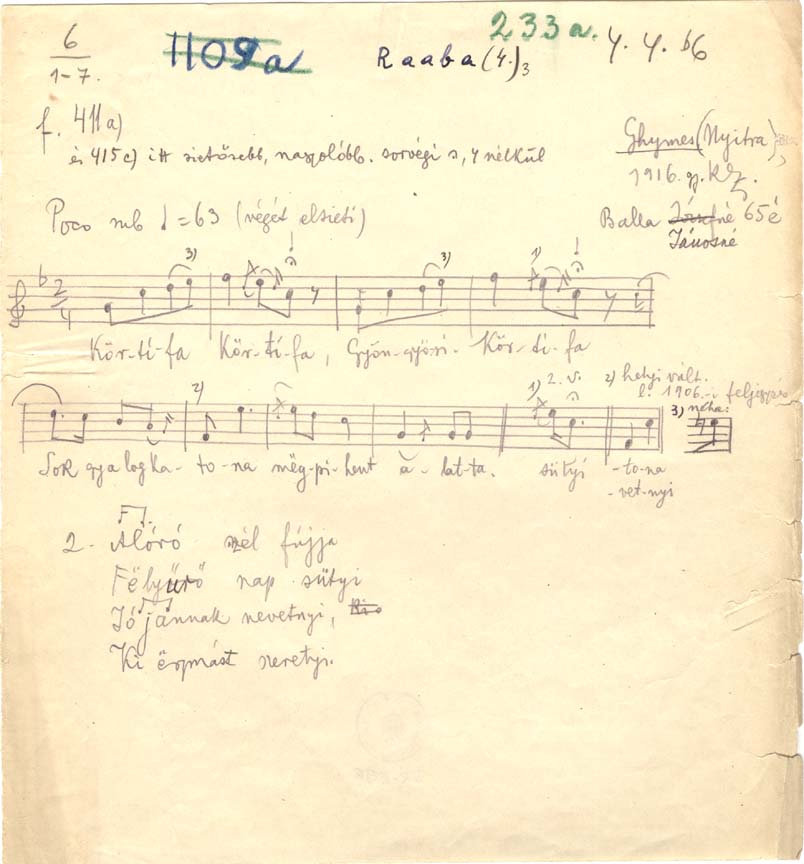 6
1-7.
1109a
233a.
Raaba(4.)3
4. 4. b6
f. 411a)
és 415c) itt sietősebb, naszolóbb. sorvégi s, 4 nélkül
Ghymes (Nyitra),
1916. gy. KZ.
Poco rub ♩=63 (végét elsieti)
Balla Józsefné 65é
Jánosné
3) 3) 1)
2
4
Kör-ti-fa Kör-ti-fa, Gyön-gyö-si- Kör-ti-fa
2) 1) 2. v. 2) helyi vált.
l. 1906.-i feljegyzés
3) néha:
Sok gya log ka- to-na még-pi-hent a-lat-ta. sütyi -to-na
-vet-nyi
2. Alóró szél fújja
Fëlyűrő nap sütyi
Jó jánnak nevetnyi,
Ki ëgymást szeretyi.